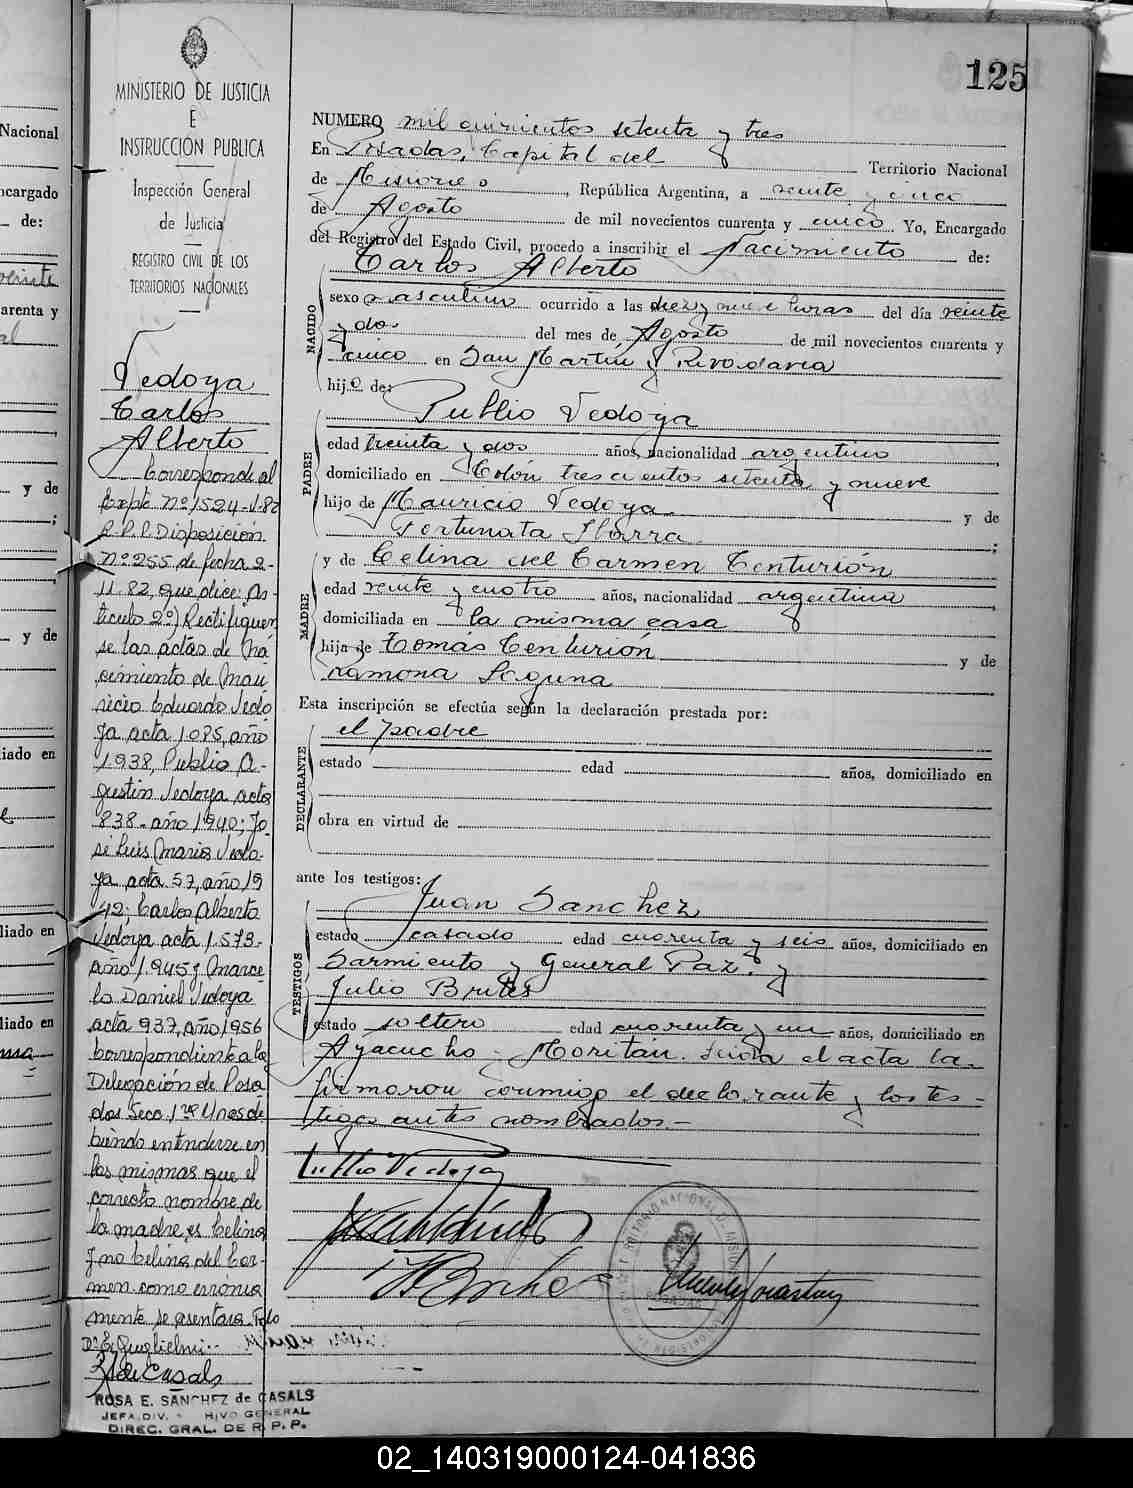 125
MINISTERIO DE JUSTICIA
E
INSTRUCCIÓN PUBLICA
Inspección General
de Justicia
REGISTRO CIVIL DE LOS
TERRITORIOS NACIONALES
Vedoya
Carlos
Alberto
Corresponde al
Expte Nº 1524-V-82
R.P.P. Disposición
Nº 255 de fecha 2-
11.82, que dice: Ar-
tículo 2º) Rectifíquen
se las actas de na-
cimiento de Mau
ricio Eduardo Vedo
ya acta 1085, año
1938, Publio A-
gustín Vedoya acta
838- año 1940; Jo-
sé Luis Mario Vedo-
ya acta 57, año 19
42; Carlos Alberto
Vedoya acta 1.573-
año 1.945 y Marce
lo Daniel Vedoya
acta 937, año 1956
correspondiente a la
Delegación de Posa
das Secc. 1ra Mnes de
biendo entenderse en
las mismas que el
correcto nombre de
la madre es Celina
y no Celina del Car-
men como errónea
mente se asentara. Fdo
Dr E. Guglielmi..
ROSA E. SÁNCHEZ de CASALS
JEFA DIV. HIVO GENERAL
DIREC. GRAL. DE R. P. P.
NUMERO mil quinientos setenta y tres
En Posadas, Capital del Territorio Nacional
de Misiones, República Argentina, a veinte y cinco
de Agosto de mil novecientos cuarenta y cinco Yo, Encargado
del Registro del Estado Civil, procedo a inscribir el Nacimiento de:
Carlos Alberto
NACIDO
sexo masculino ocurrido a las diez y nueve horas del día veinte
y dos del mes de Agosto de mil novecientos cuarenta y
cinco en San Martín y Rivadavia
hijo de:
Publio Vedoya
PADRE
edad treinta y dos años, nacionalidad argentino,
domiciliado en Colón trescientos setenta y nueve
hijo de Mauricio Vedoya y de
Fortunata Ibarra;
y de Celina del Carmen Centurión
MADRE
edad veinte y cuatro años, nacionalidad argentina,
domiciliada en la misma casa
hija de Tomás Centurión y de
Ramona Laguna
Esta inscripción se efectúa según la declaración prestada por:
el padre
DECLARANTE
estado edad años, domiciliado en
obra en virtud de
ante los testigos:
Juan Sanchez
TESTIGOS
estado casado edad cuarenta y seis años, domiciliado en
Sarmiento y General Paz. y
Julio Brites
estado soltero edad cuarenta y un años, domiciliado en
Ayacucho - Moritán. Leída el acta la
firmaron conmigo el declarante y los tes-
tigos antes nombrados.-
Publio Vedoya
02_140319000124-041836